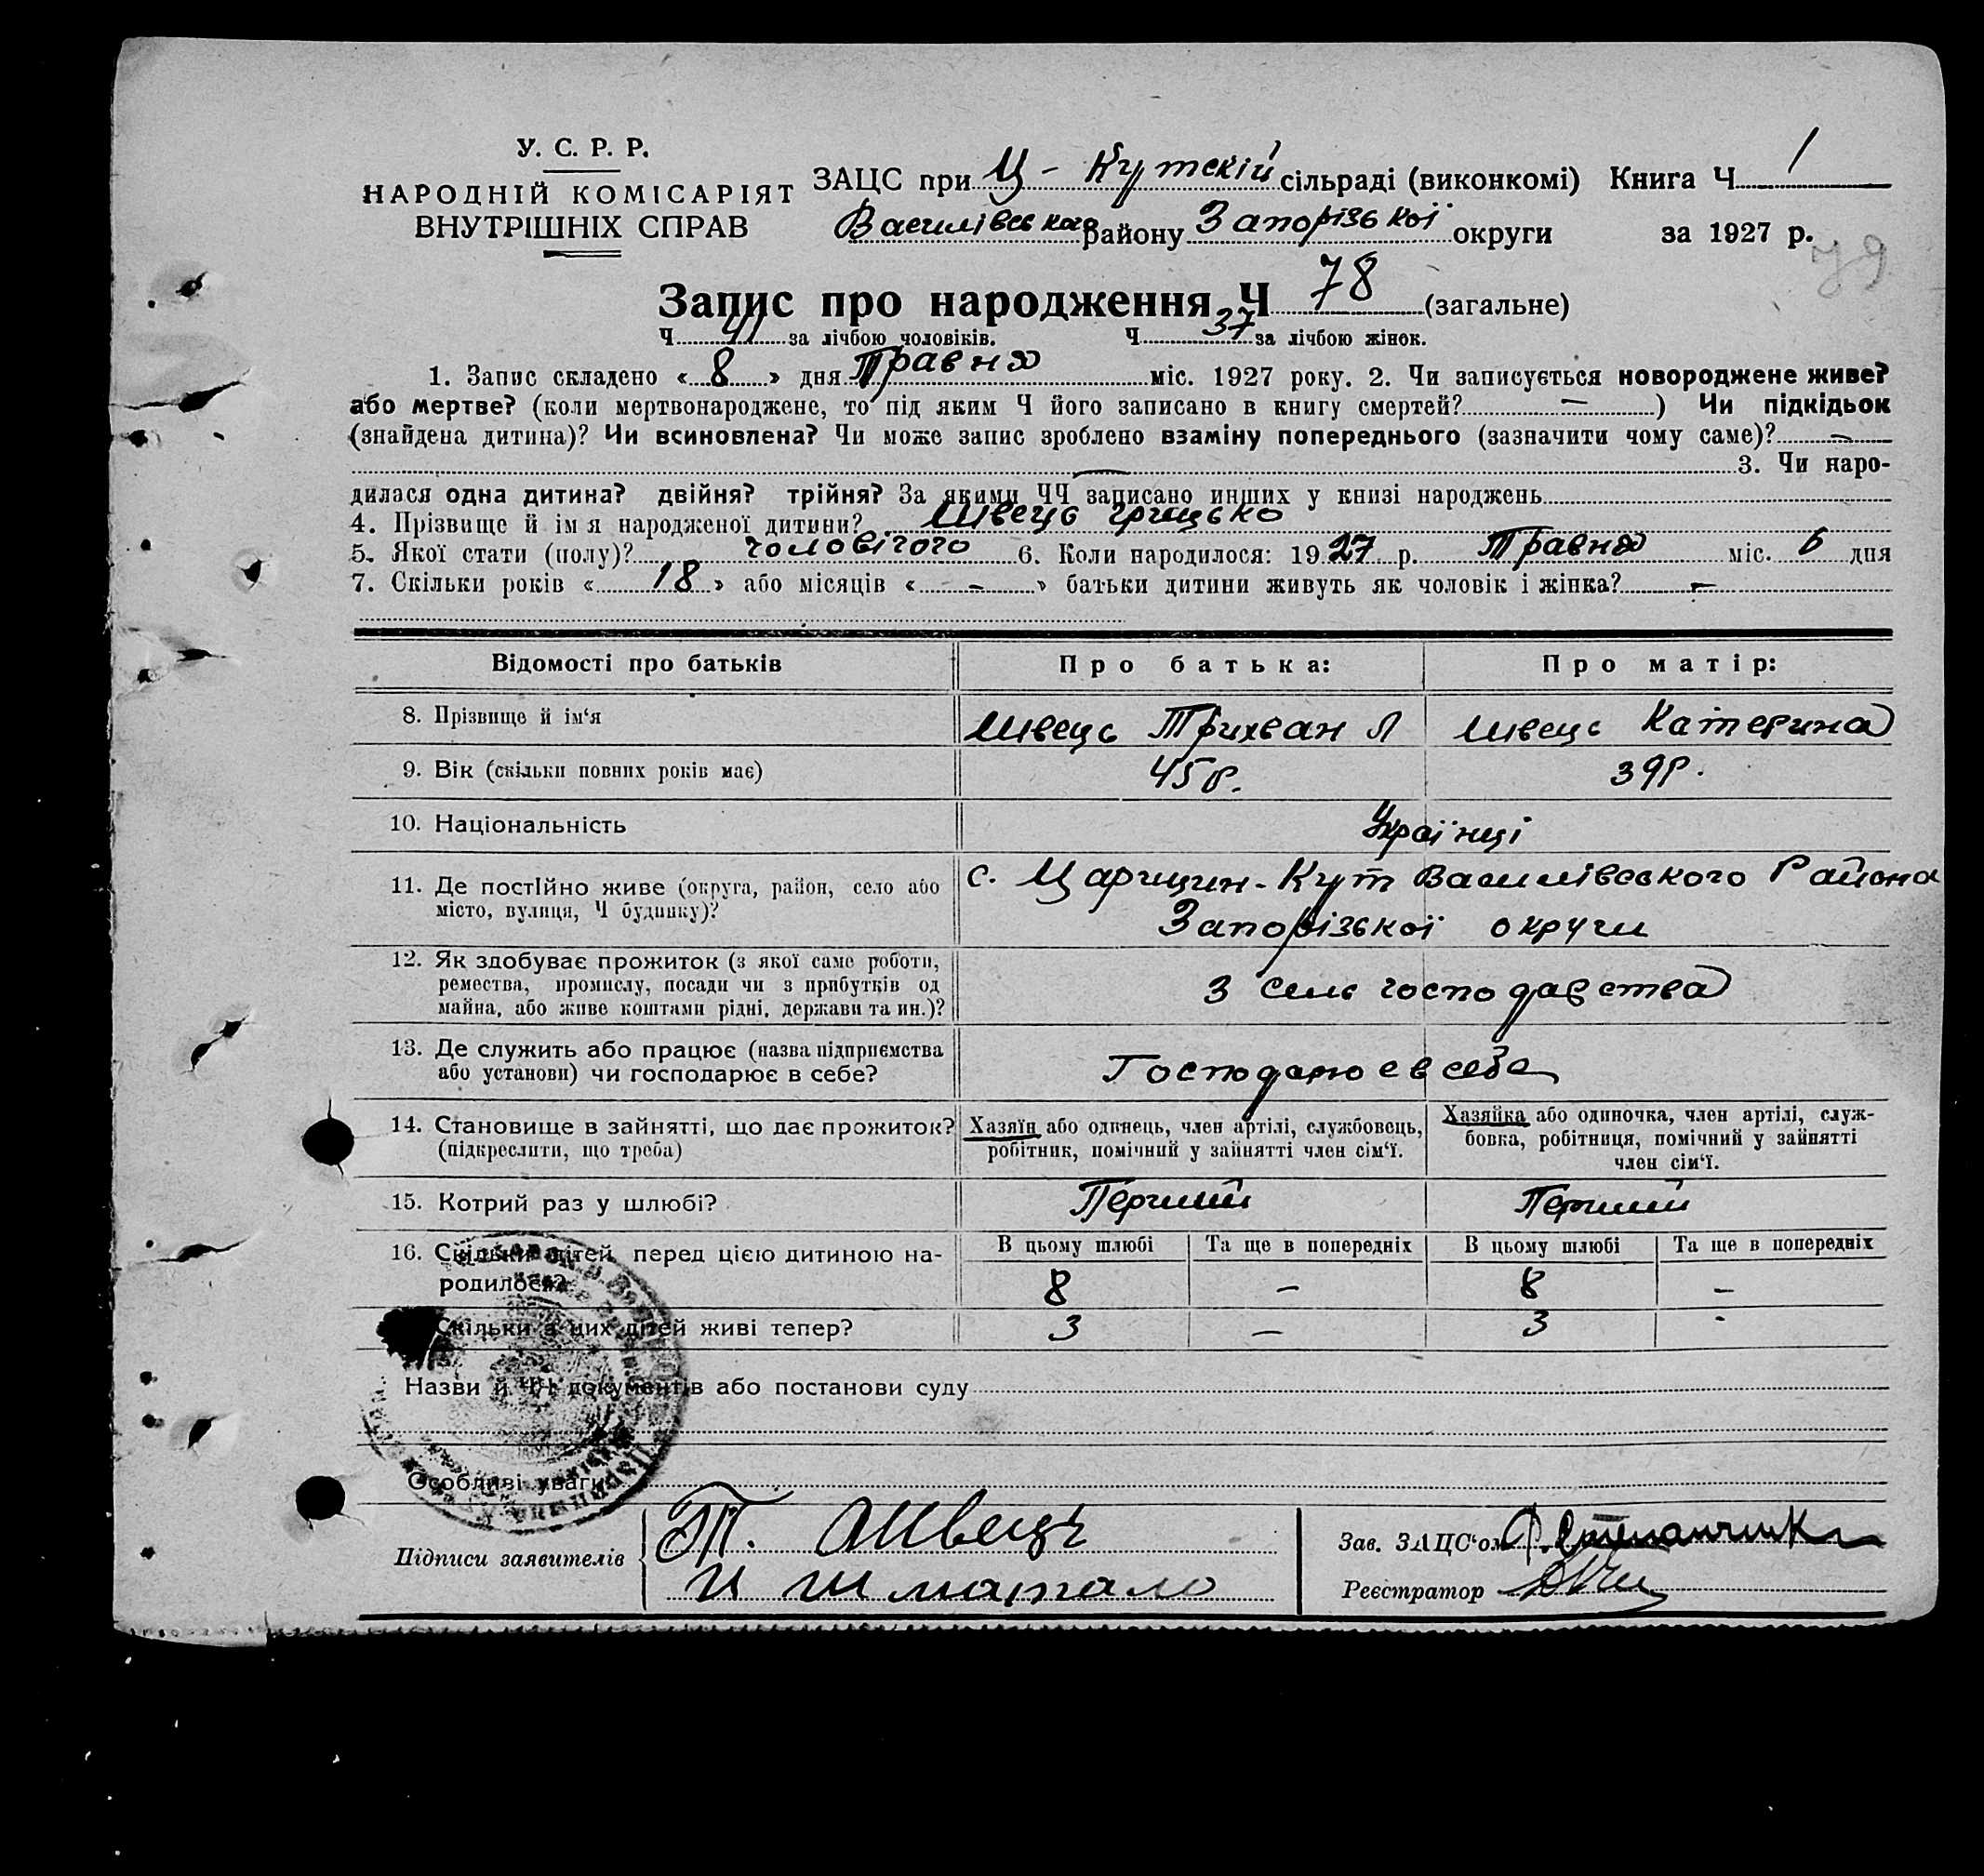 У. С. Р. Р.
НАРОДНІЙ КОМІСАРІЯТ
ВНУТРІШНІХ СПРАВ
ЗАЦС при Ц - Кутскій сільраді (виконкомі) Книга Ч 1
Василівськаго району Запорізької округи за 1927 р.
79
Запис про народження Ч 78 (загальне)
Ч 41 за лічбою чоловіків. Ч 37 за лічбою жінок.
1. Запис складено « 8 » дня Травня міс. 1927 року. 2. Чи записується новороджене живе?
або мертве? (коли мертвонароджене, то під яким Ч його записано в книгу смертей? — ) Чи підкідьок
(знайдена дитина)? Чи всиновлена? Чи може запис зроблено взаміну попереднього (зазначити чому саме)? —
— 3. Чи наро-
дилася одна дитина? двійня? трійня? За якими ЧЧ записано инших у книзі народжень
4. Прізвище й ім я народженої дитини? Швець Грицько
5. Якої стати (полу)? чоловічого 6. Коли народилося: 1927 р. Травня міс. 6 дня
7. Скільки років « 18 » або місяців « - » батьки дитини живуть як чоловік і жінка? —
Відомості про батьків Про батька: Про матір:
8. Прізвище й ім‘я Швець Трихван Л Швець Катерина
9. Вік (скільки повних років має) 45 р. 39 р.
10. Національність Українці
11. Де постійно живе (округа, район, село або
місто, вулиця, Ч будинку)?
с. Царицин-Кут Василівського Района
Запорізської округи
12. Як здобуває прожиток (з якої саме роботи,
ремества, промислу, посади чи з прибутків од
майна, або живе коштами рідні, держави та ин.)?
З сель господавства
13. Де служить або працює (назва підприємства
або установи) чи господарює в себе?
Господарює в себе
14. Становище в зайнятті, що дає прожиток?
(підкреслити, що треба)
Хазяїн або одинець, член артілі, службовець,
робітник, помічний у зайнятті член сім‘ї.
Хазяйка або одиночка, член артілі, служ-
бовка, робітниця, помічний у зайнятті
член сім‘ї.
15. Котрий раз у шлюбі? Перший Перший
16. Скільки дітей перед цією дитиною на-
родилося?
В цьому шлюбі Та ще в попередніх В цьому шлюбі Та ще в попередніх
8 — 8 —
Скільки з них дітей живі тепер? 3 — 3 -
Назви й ЧЧ документів або постанови суду
Особливі уваги
Підписи заявителів
Т. Швець
И Шматало
Зав. ЗАЦС‘ом
Реєстратор